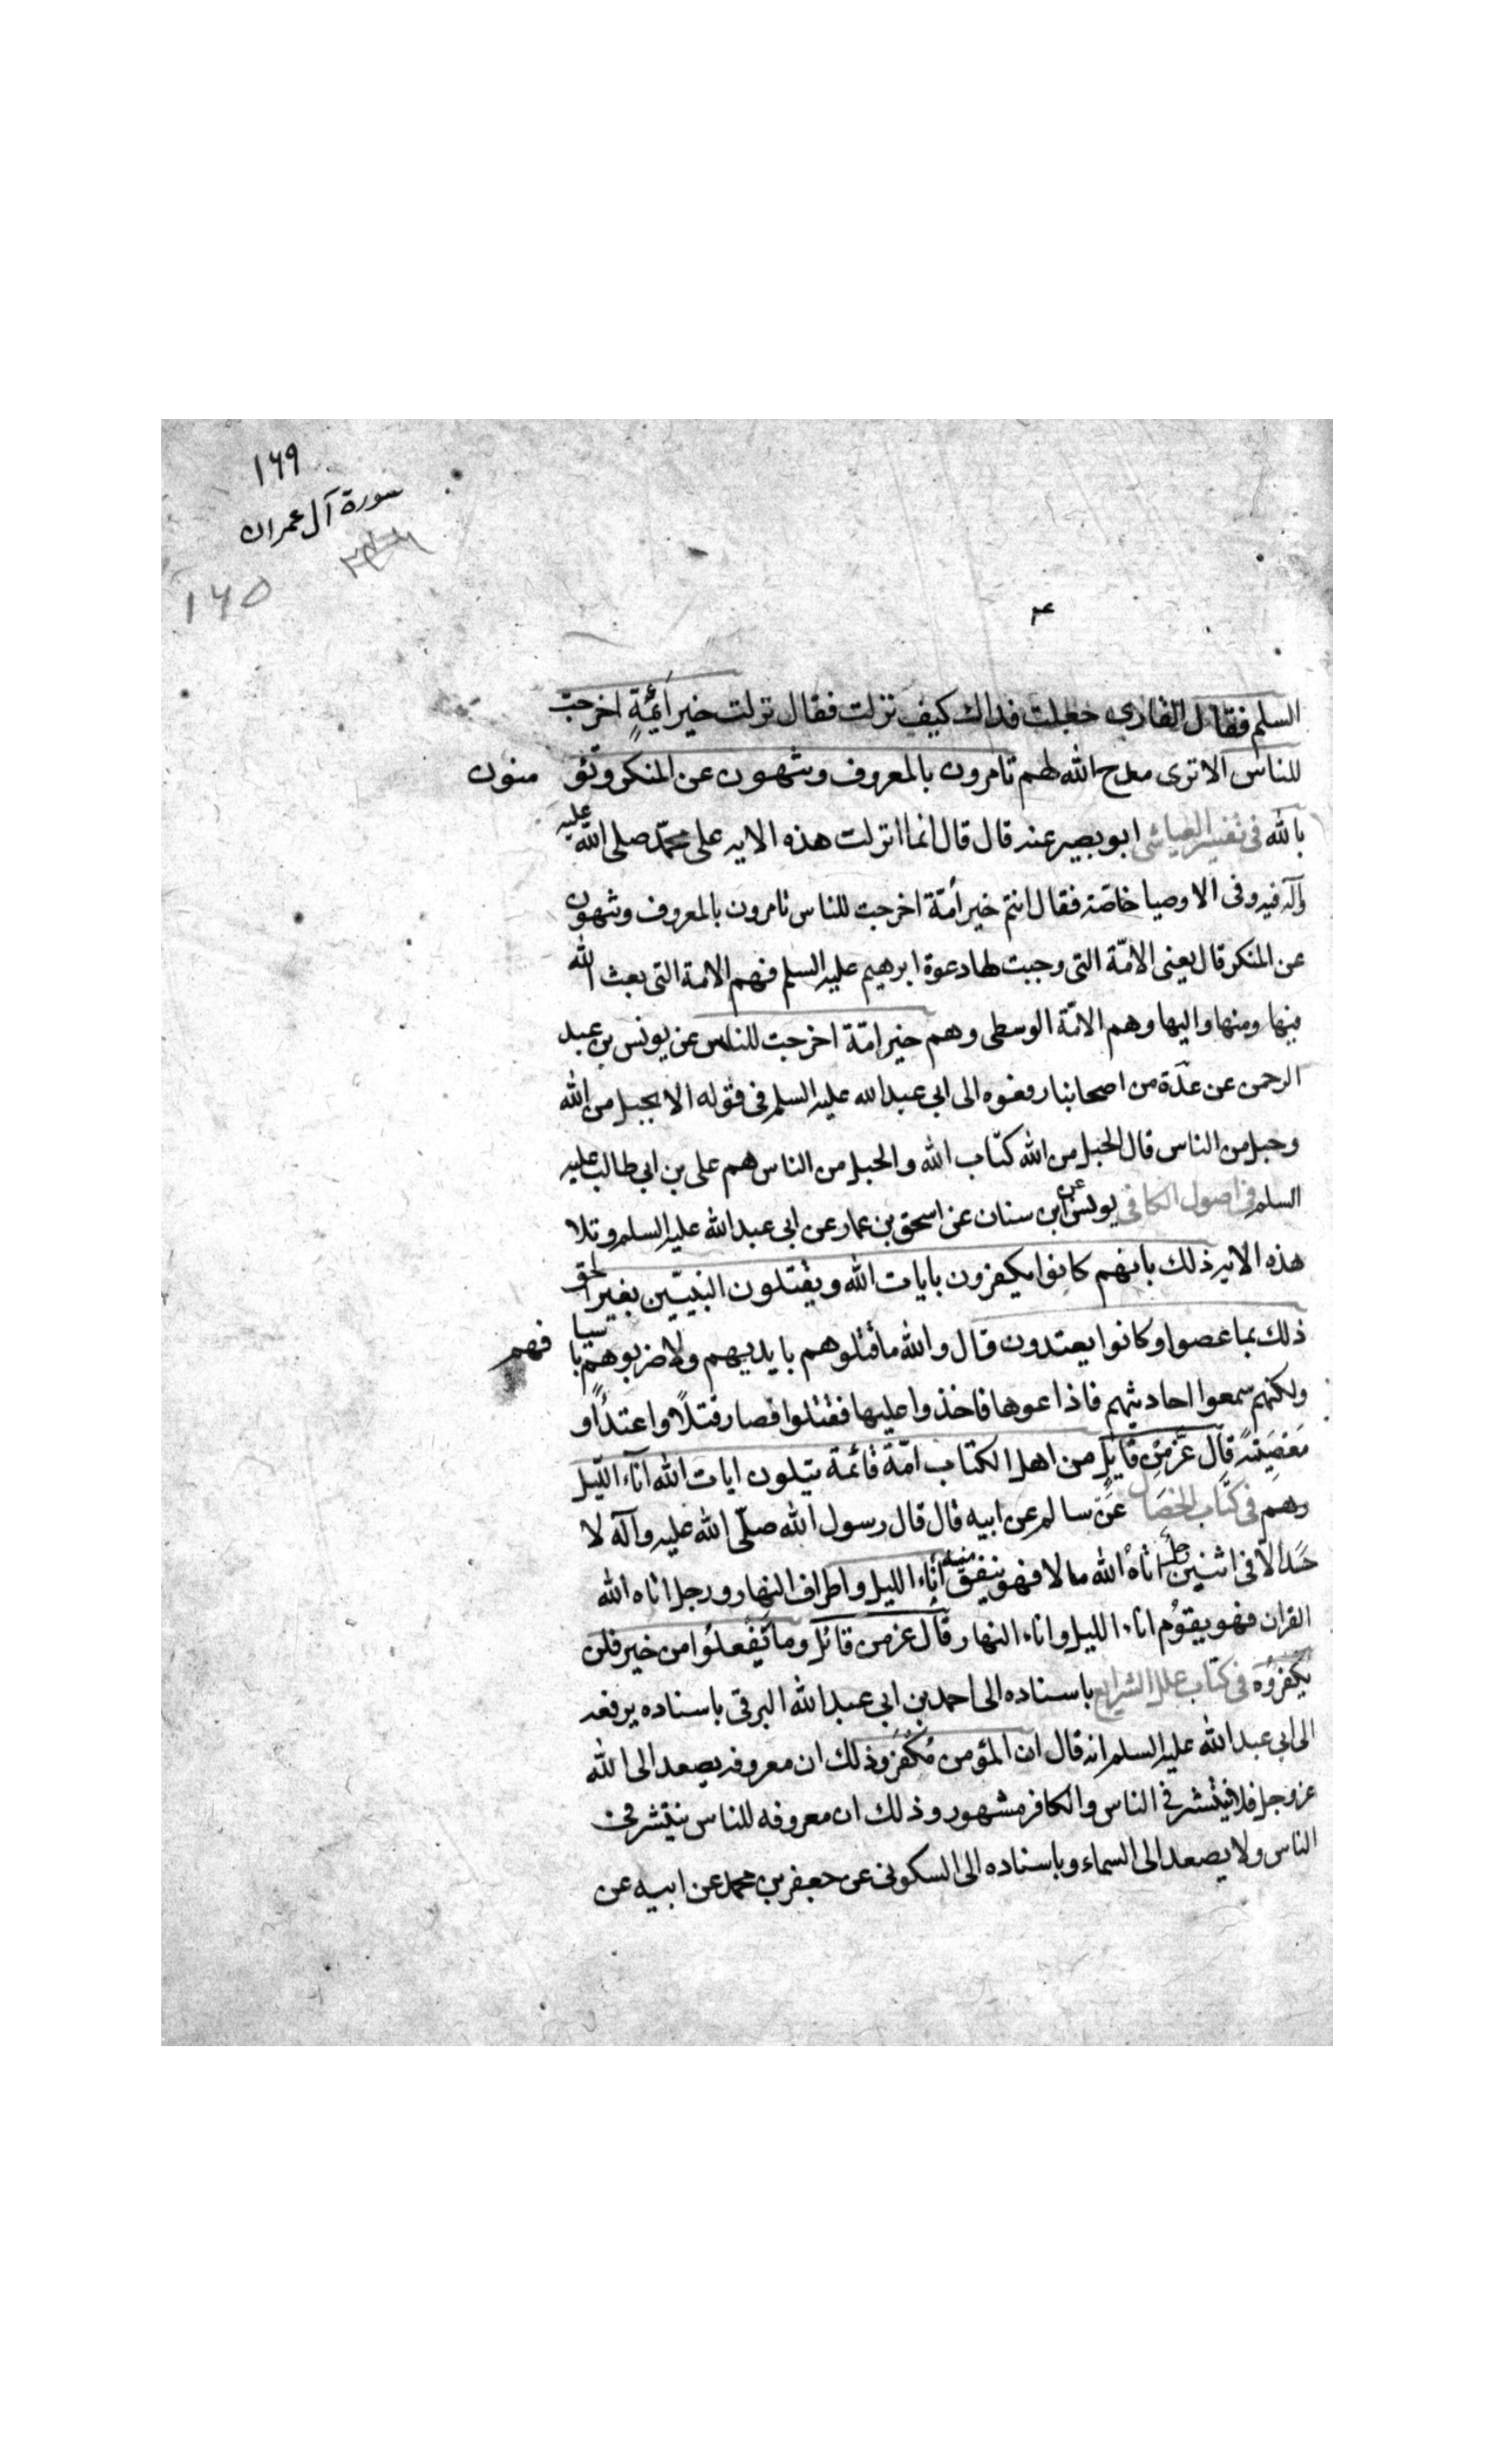 ١٦٩
سورة آل عمران
١٦٥
السلم فقال القارى جعلت فداك كيف نزلت فقال نزلت خير أئمّةٍ اخرجت
للناس الا ترى مدح الله لهم تامرون بالمعروف وتنهون عن المنكر وتؤ منون
بالله فى تفسير العياشى ابو بصير عنه قال قال انما انزلت هذه الايه على محمّد صلى الله عليه
وآله فيه وفى الاوصيا خاصّة فقال انتم خير أمّة اخرجت للناس تامرون بالمعروف وتنهون
عن المنكر قال يعنى الامّة التى وجبت لها دعوة ابرهيم عليه السلم فهم الامة التى بعث الله
فيها ومنها واليها وهم الامّة الوسطى وهم خير امّة اخرجت للناس عن يونس بن عبد
الرحمن عن عدّة من اصحابنا رفعوه الى ابى عبد الله عليه السلم فى قوله الا بحبل من الله
وحبل من الناس قال الحبل من الله كتاب الله والحبل من الناس هم على بن ابى طالب عليه
السلم فى اصول الكافى يونس عن ابن سنان عن اسحق بن عمار عن ابى عبد الله عليه السلم وتلا
هذه الايه ذلك بانهم كانوا يكفرون بايات الله ويقتلون النبيّين بغير الحق
ذلك بما عصوا وكانوا يعتدون قال والله ما قتلوهم بايديهم ولا ضربوهم باسيا فهم
ولكنهم سمعوا احاديثهم فاذاعوها فاخذوا عليها فقتلوا فصار قتلاً واعتداًا و
مَعصِيَةً قال عَزّ مِن قايلٍ من اهل الكتاب امّة قائمة يتلون ايات الله اناء اللّيل
وهم فى كتاب الخصال عن سالم عن ابيه قال قال رسول الله صلّى الله عليه وآله لا
حَسَد الّا فى اثنين رجل اتاهُ الله مالا فهو ينفق منه أناء الليل واطراف النهار ورجل اتاه الله
القران فهو يقوُم اناء الليل واناء النهار قال عز من قائل وما تَفعلُوا من خير فلن
يكفرُوه فى كتاب علل الشرايع باسناده الى احمد بن ابى عبد الله البرقى باسناده يرفعه
الى ابى عبد الله عليه السلم انه قال ان المؤمن مُكَفّر وذلك ان معروفه يصعد الى الله
عز وجل فلا ينتشر فى الناس والكافر مشهور وذلك ان معروفه للناس ينتشر فى
الناس ولا يصعد الى السماء وباسناده الى السكونى عن جعفر بن محمد عن ابيه عن